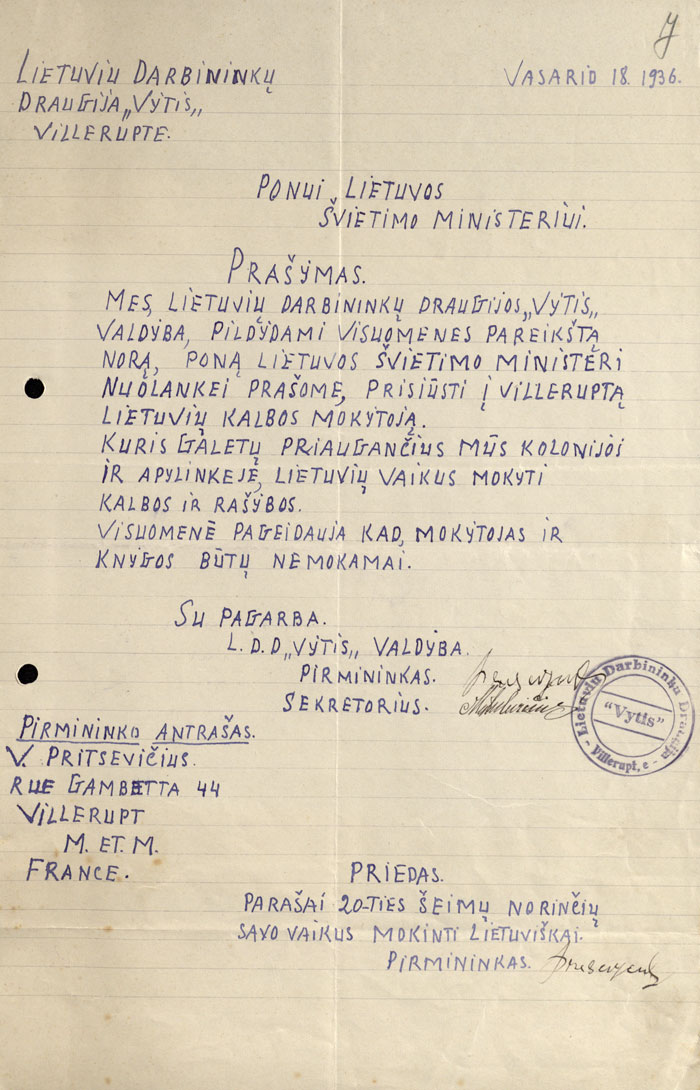 Lietuvių Darbininkų
Draugija „Vytis„
Villerupte.
Vasario 18. 1936.
Ponui „Lietuvos
Švietimo Ministeriui.
Prašymas.
Mes, Lietuvių Darbininkų Draugijos „Vytis„
Valdyba, pildydami visuomenes pareikštą
norą, Poną Lietuvos Švietimo Ministeri
nuolankei prašome, prisiūsti į Villeruptą
Lietuvių kalbos mokytoją.
Kuris galetų priaugančius mūs kolonijoi
ir apylinkeje, Lietuvių vaikus mokyti
kalbos ir rašybos.
Visuomenė pageidauja kad, mokytojas ir
knygos būtų nemokamai.
Su pagarba.
L.D.D „Vytis„ Valdyba.
Pirmininkas.
Sekretorius.
Lietuvių Darbininkų Draugija
"Vytis"
Villerupt, e
Pirmininko antrašas.
V. Pritsevičius.
Rue Gambetta 44
Villerupt
M. et. M.
France.
Priedas.
Parašai 20-ties šeimų norinčių
savo vaikus mokinti Lietuviškai.
Pirmininkas.